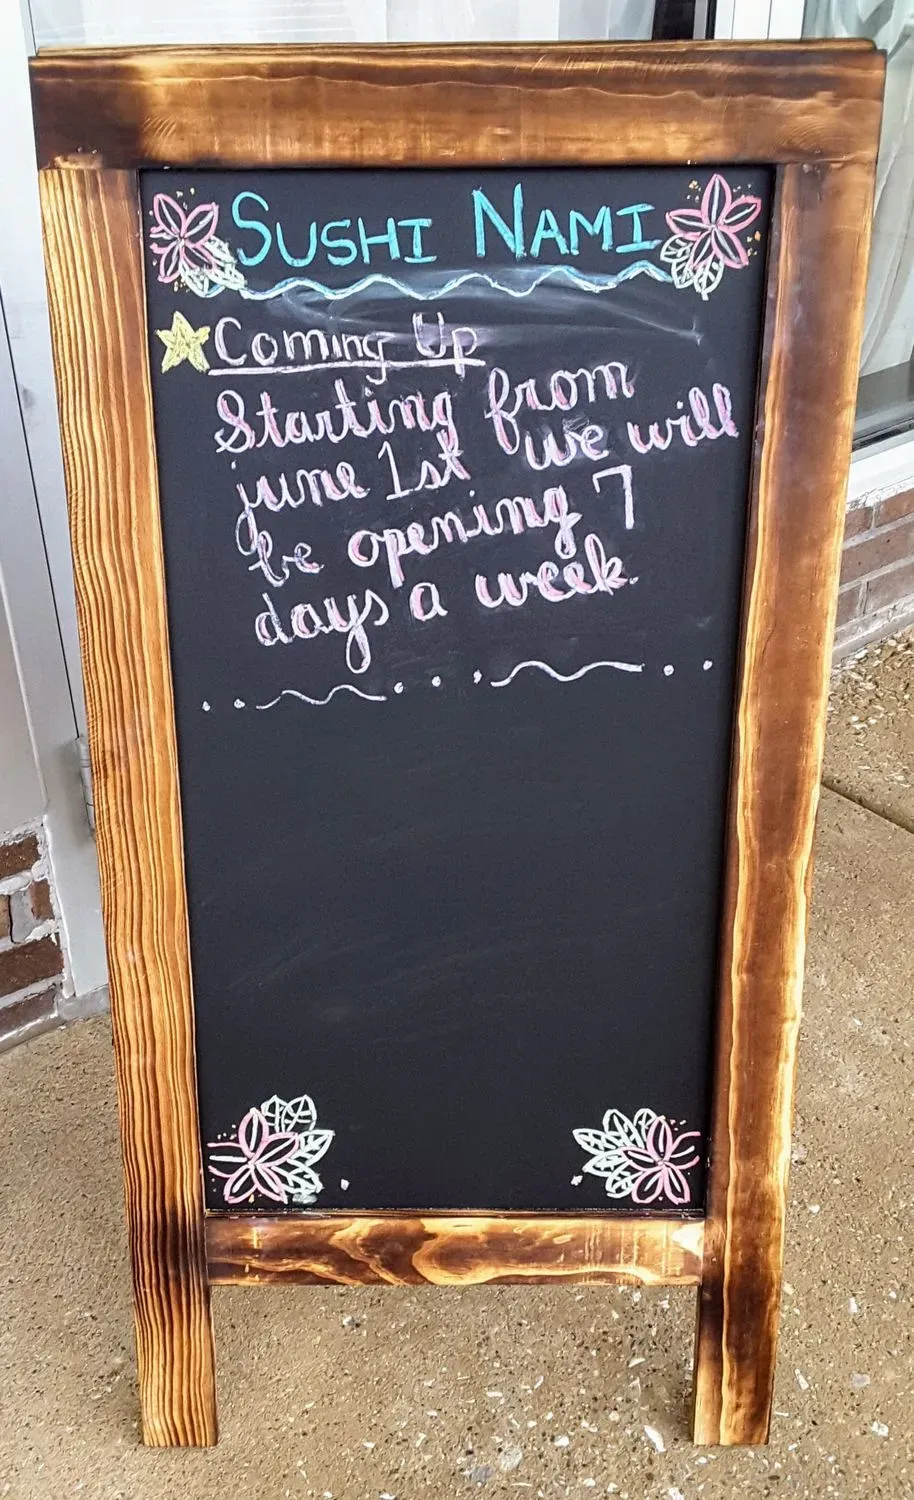 SUSHI NAMI
Coming Up
Starting from
june 1st we will
be opening 7
days a week.